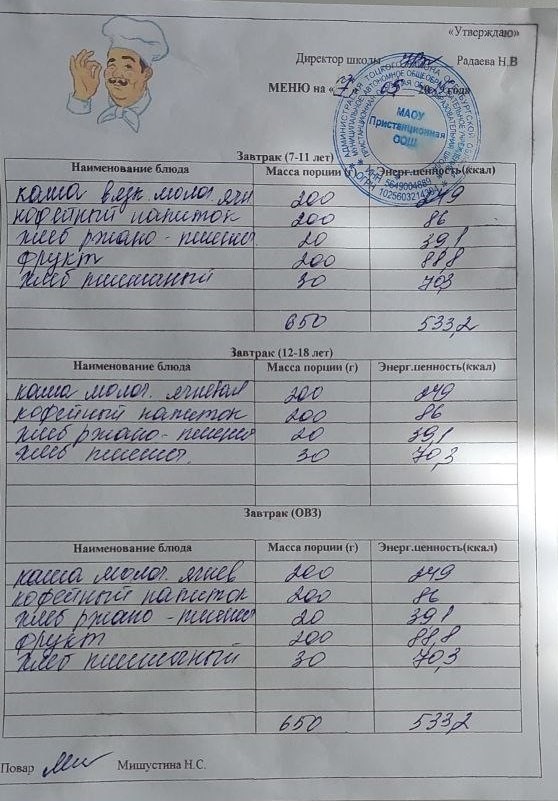 «Утверждаю»
Директор школы Радаева Н.В
МЕНЮ на « 20 года
АДМИНИСТРАЦИЯ ТОЦКОГО РАЙОНА ОРЕНБУРГСКОЙ
МУНИЦИПАЛЬНОЕ АВТОНОМНОЕ ОБЩЕОБРАЗОВАТЕЛЬНОЕ
МАОУ
Пристанционная
ООШ
ИНН 5649004689
ОГРН
Завтрак (7-11 лет)
Наименование блюда Масса порции (г) Энерг.ценность(ккал)
каша вязк. молоч. ячн 200 249
кофейный напиток 200 86
хлеб ржано-пшенич 20 39,1
фрукт 200 88,8
хлеб пшеничный 30 70,3
650 533,2
Завтрак (12-18 лет)
Наименование блюда Масса порции (г) Энерг.ценность(ккал)
каша молоч. ячневая 200 249
кофейный напиток 200 86
хлеб ржано-пшенич 20 39,1
хлеб пшенич. 30 70,3
Завтрак (ОВЗ)
Наименование блюда Масса порции (г) Энерг.ценность(ккал)
каша молоч. ячнев 200 249
кофейный напиток 200 86
хлеб ржано-пшенич 20 39,1
фрукт 200 88,8
хлеб пшеничный 30 70,3
650 533,2
Повар Мишустина Н.С.